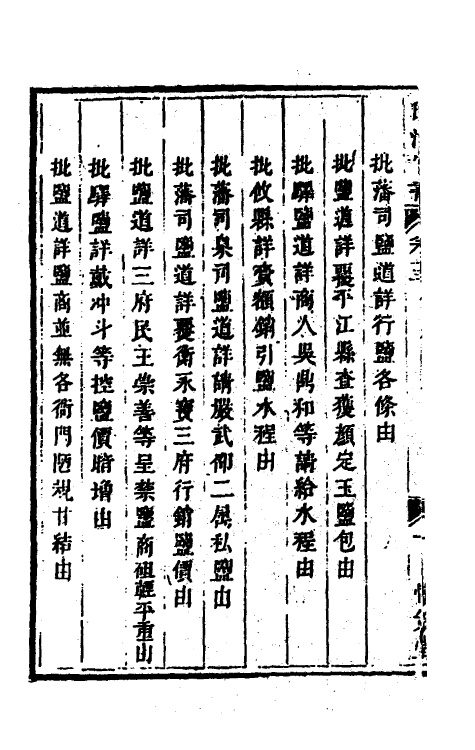 批藩司鹽道詳行鹽各條由
批鹽道詳覆平江縣查獲顏定玉鹽包由
批驛鹽道詳商人吳鼎和等請給水程由
批攸縣詳賣額銷引鹽水程由
批藩司臬司鹽道詳請嚴武仰二居私鹽由
批藩司鹽道詳覆衡永寶三府行銷鹽價由
批鹽道詳三府民王榮善等呈禁鹽商租輕平重由
批驛鹽詳戴冲斗等控鹽價暗增由
批鹽道詳鹽商並無各衙門陋規甘結由